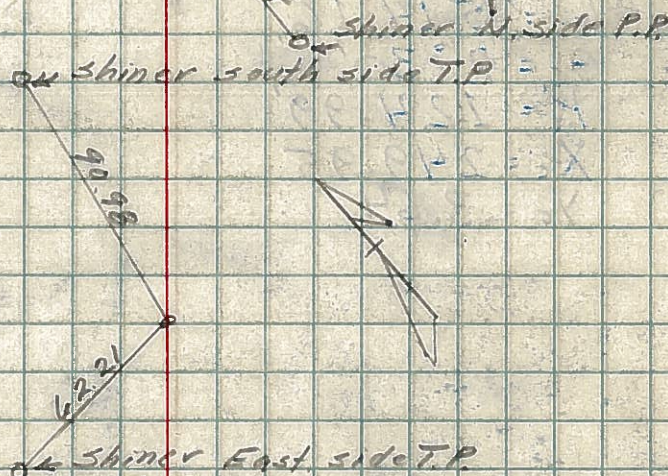 Shiner N. side P.P.
Shiner south side T.P.
90.98
62.21
Shiner East side T.P.